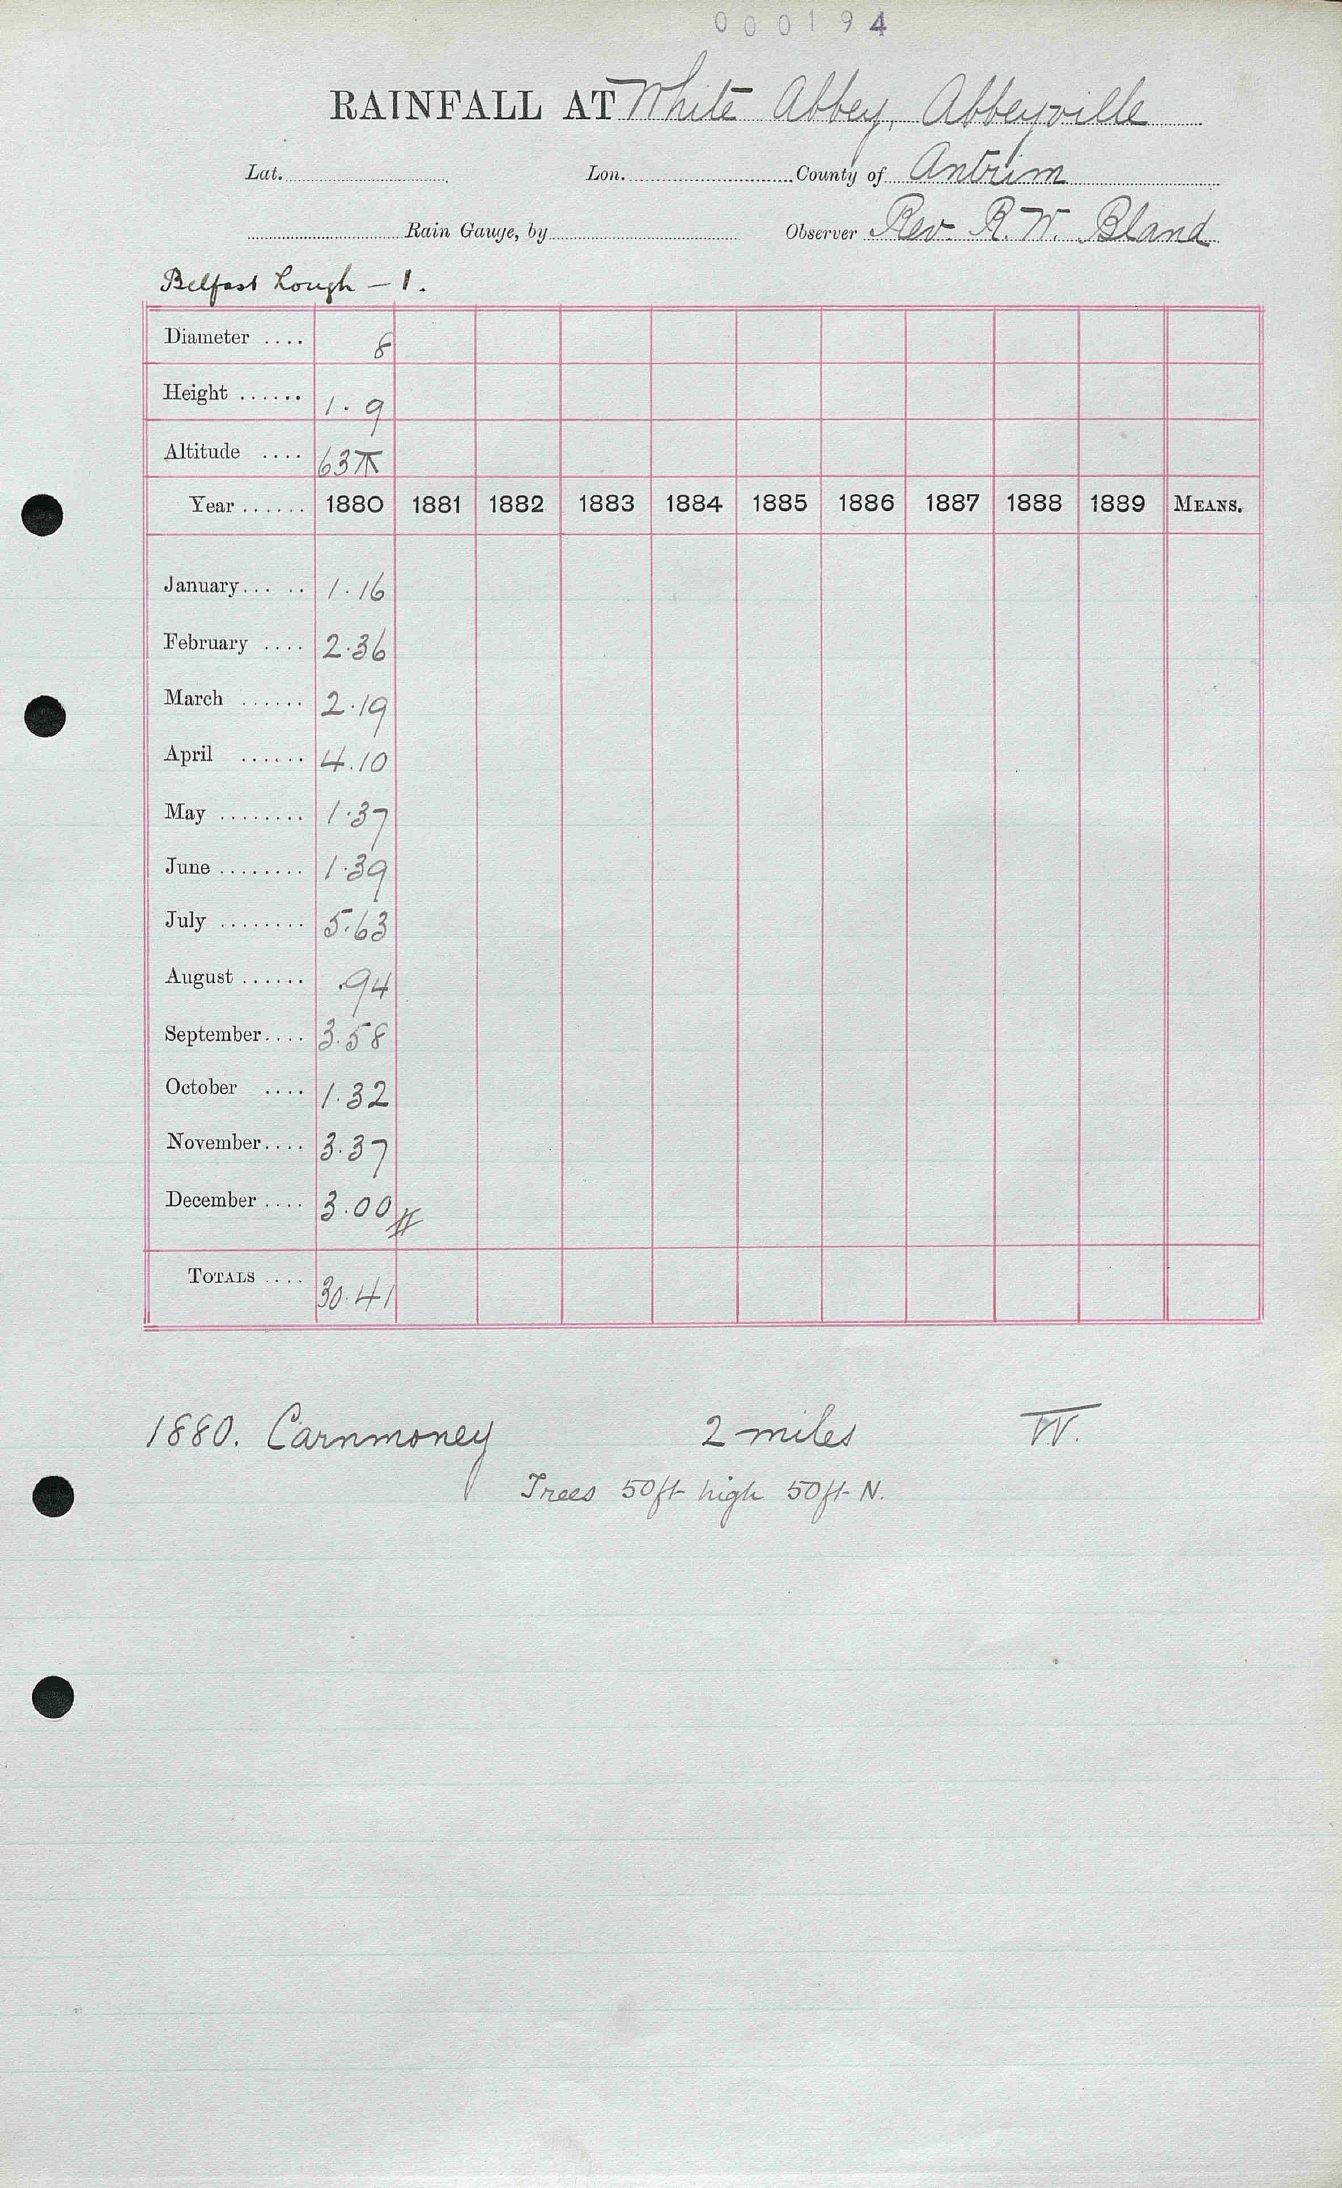 000194
RAINFALL AT White Abbey, Abbeyville
Lat. Lon. County of Antrim
Rain Gauge, by Observer Rev. R. W. Bland
Belfast Lough – 1.
Diameter .... 8
Height ...... 1.9
Altitude .... 63
Year ...... 1880 1881 1882 1883 1884 1885 1886 1887 1888 1889 MEANS.
January ... .. 1.16
February .... 2.36
March ...... 2.19
April ...... 4.10
May ........ 1.37
June ........ 1.39
July ........ 5.63
August ...... .94
September .... 3.58
October .... 1.32
November .... 3.37
December .... 3.00
TOTALS .... 30.41
1880. Carnmoney 2 miles W.
Trees 50ft high 50ft N.